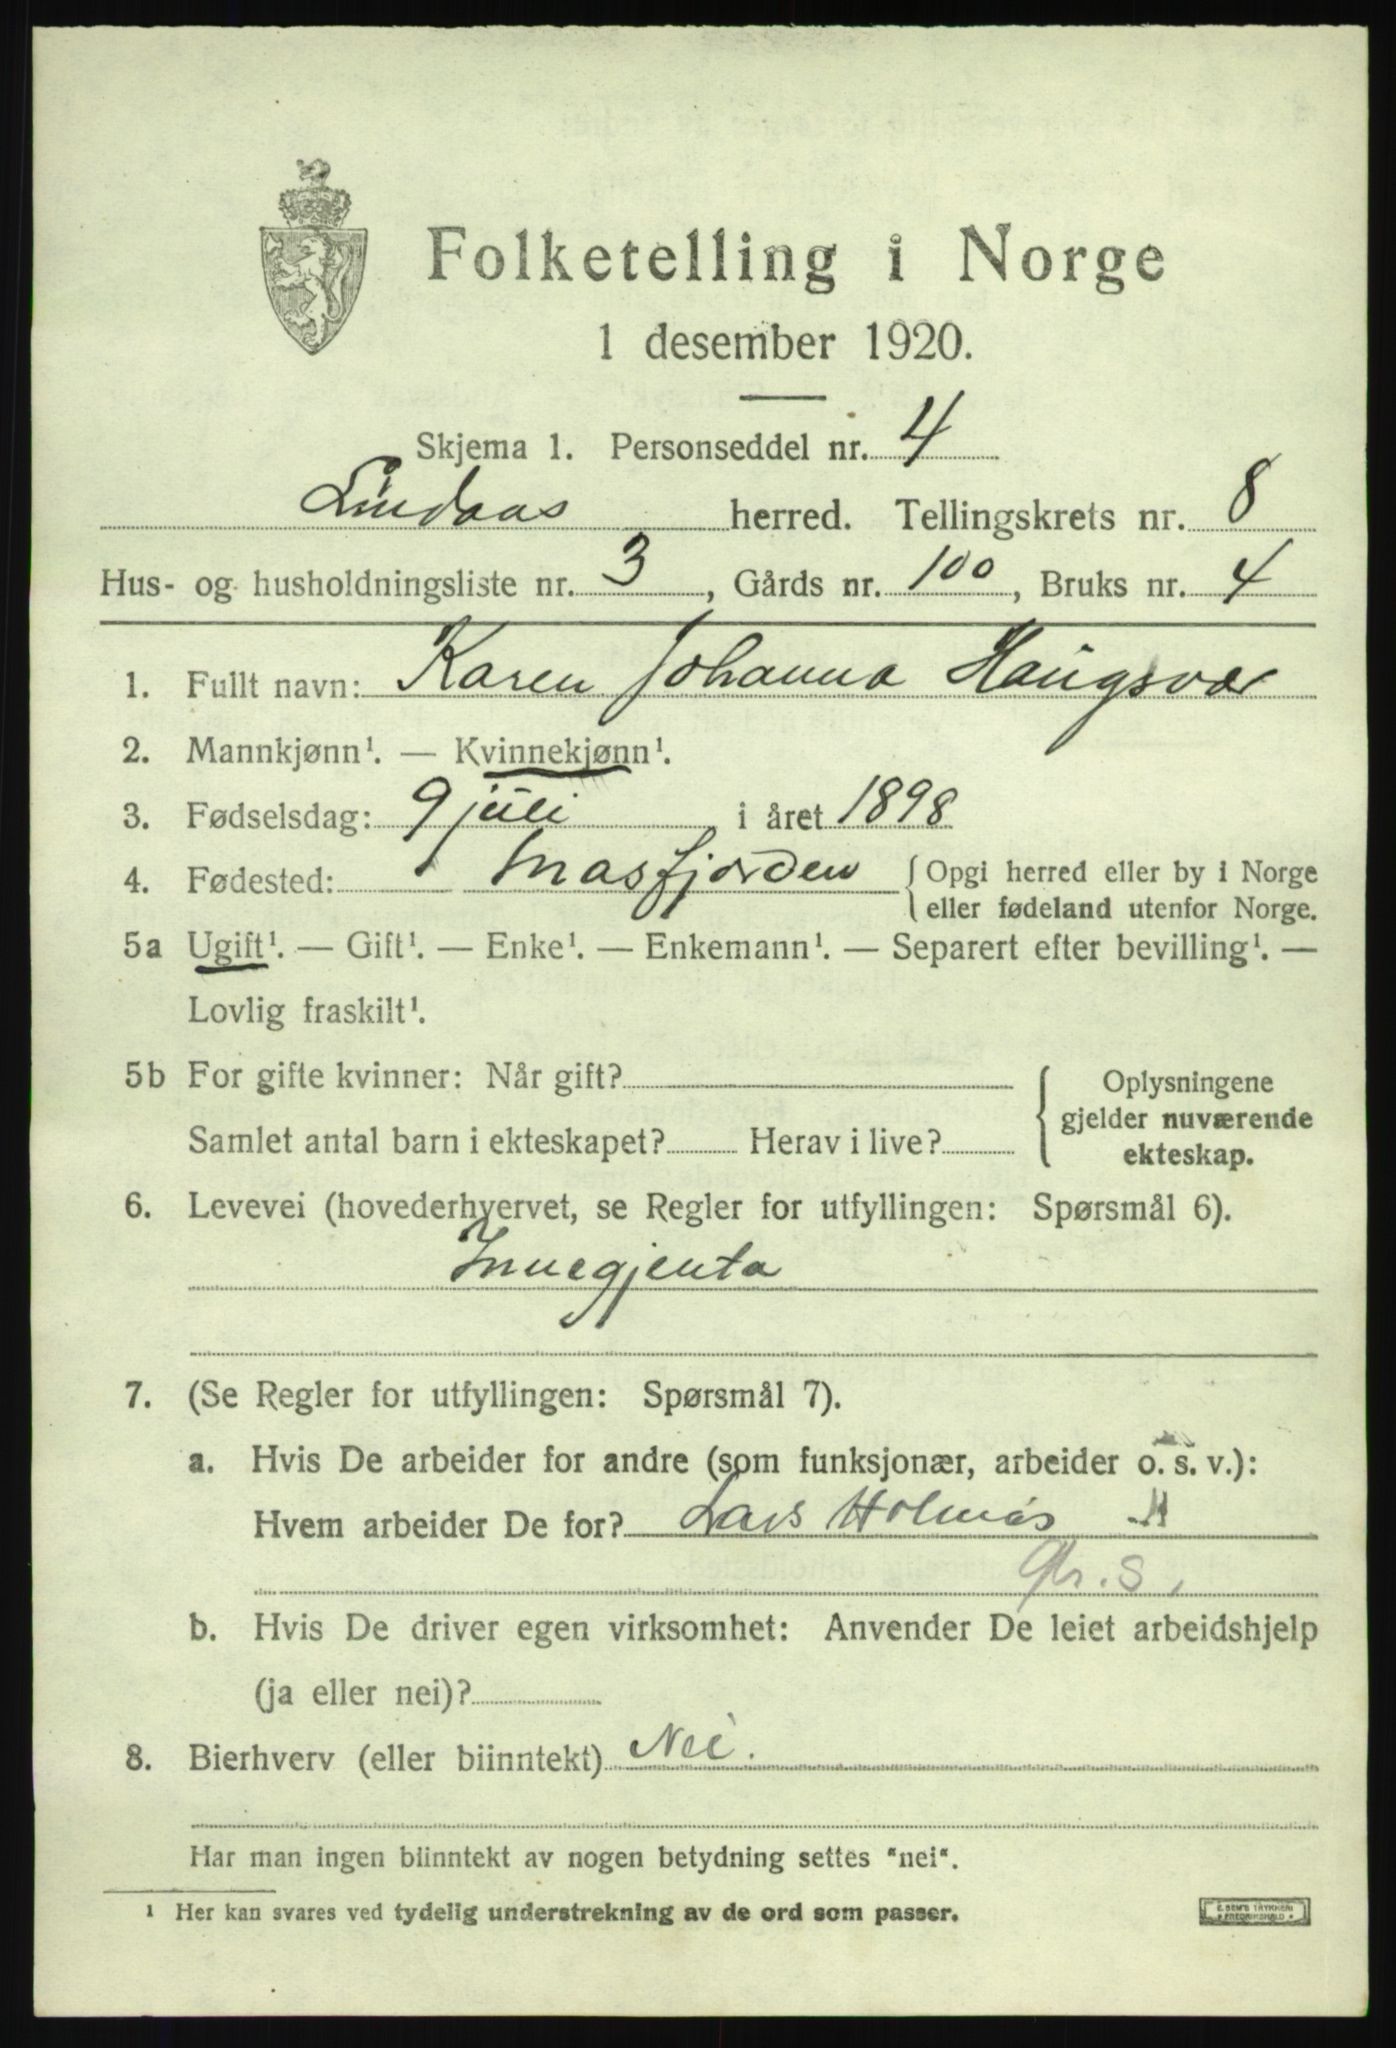 Folketelling i Norge
1 desember 1920.
Skjema 1. Personseddel nr. 4
Lindaas herred. Tellingskrets nr. 8
Hus- og husholdningsliste nr. 3, Gårds nr. 100, Bruks nr. 4
1. Fullt navn: Karen Johanna Haugsvær
2. Mannkjønn¹. — Kvinnekjønn¹.
3. Fødselsdag: 9 juli i året 1898
4. Fødested: Masfjorden { Opgi herred eller by i Norge
eller fødeland utenfor Norge.
5a Ugift¹. — Gift¹. — Enke¹. — Enkemann¹. — Separert efter bevilling¹. —
Lovlig fraskilt¹.
5b For gifte kvinner: Når gift? { Oplysningene
gjelder nuværende
Samlet antal barn i ekteskapet? Herav i live?
ekteskap.
6. Levevei (hovederhvervet, se Regler for utfyllingen: Spørsmål 6).
Innegjenta
7. (Se Regler for utfyllingen: Spørsmål 7).
a. Hvis De arbeider for andre (som funksjonær, arbeider o. s. v.):
Hvem arbeider De for? Lars Holmås
b. Hvis De driver egen virksomhet: Anvender De leiet arbeidshjelp
(ja eller nei)?
8. Bierhverv (eller biinntekt) Nei.
Har man ingen biinntekt av nogen betydning settes "nei".
¹ Her kan svares ved tydelig understrekning av de ord som passer.
E. SEM'S TRYKKERI
* FREDRIKSHALD *